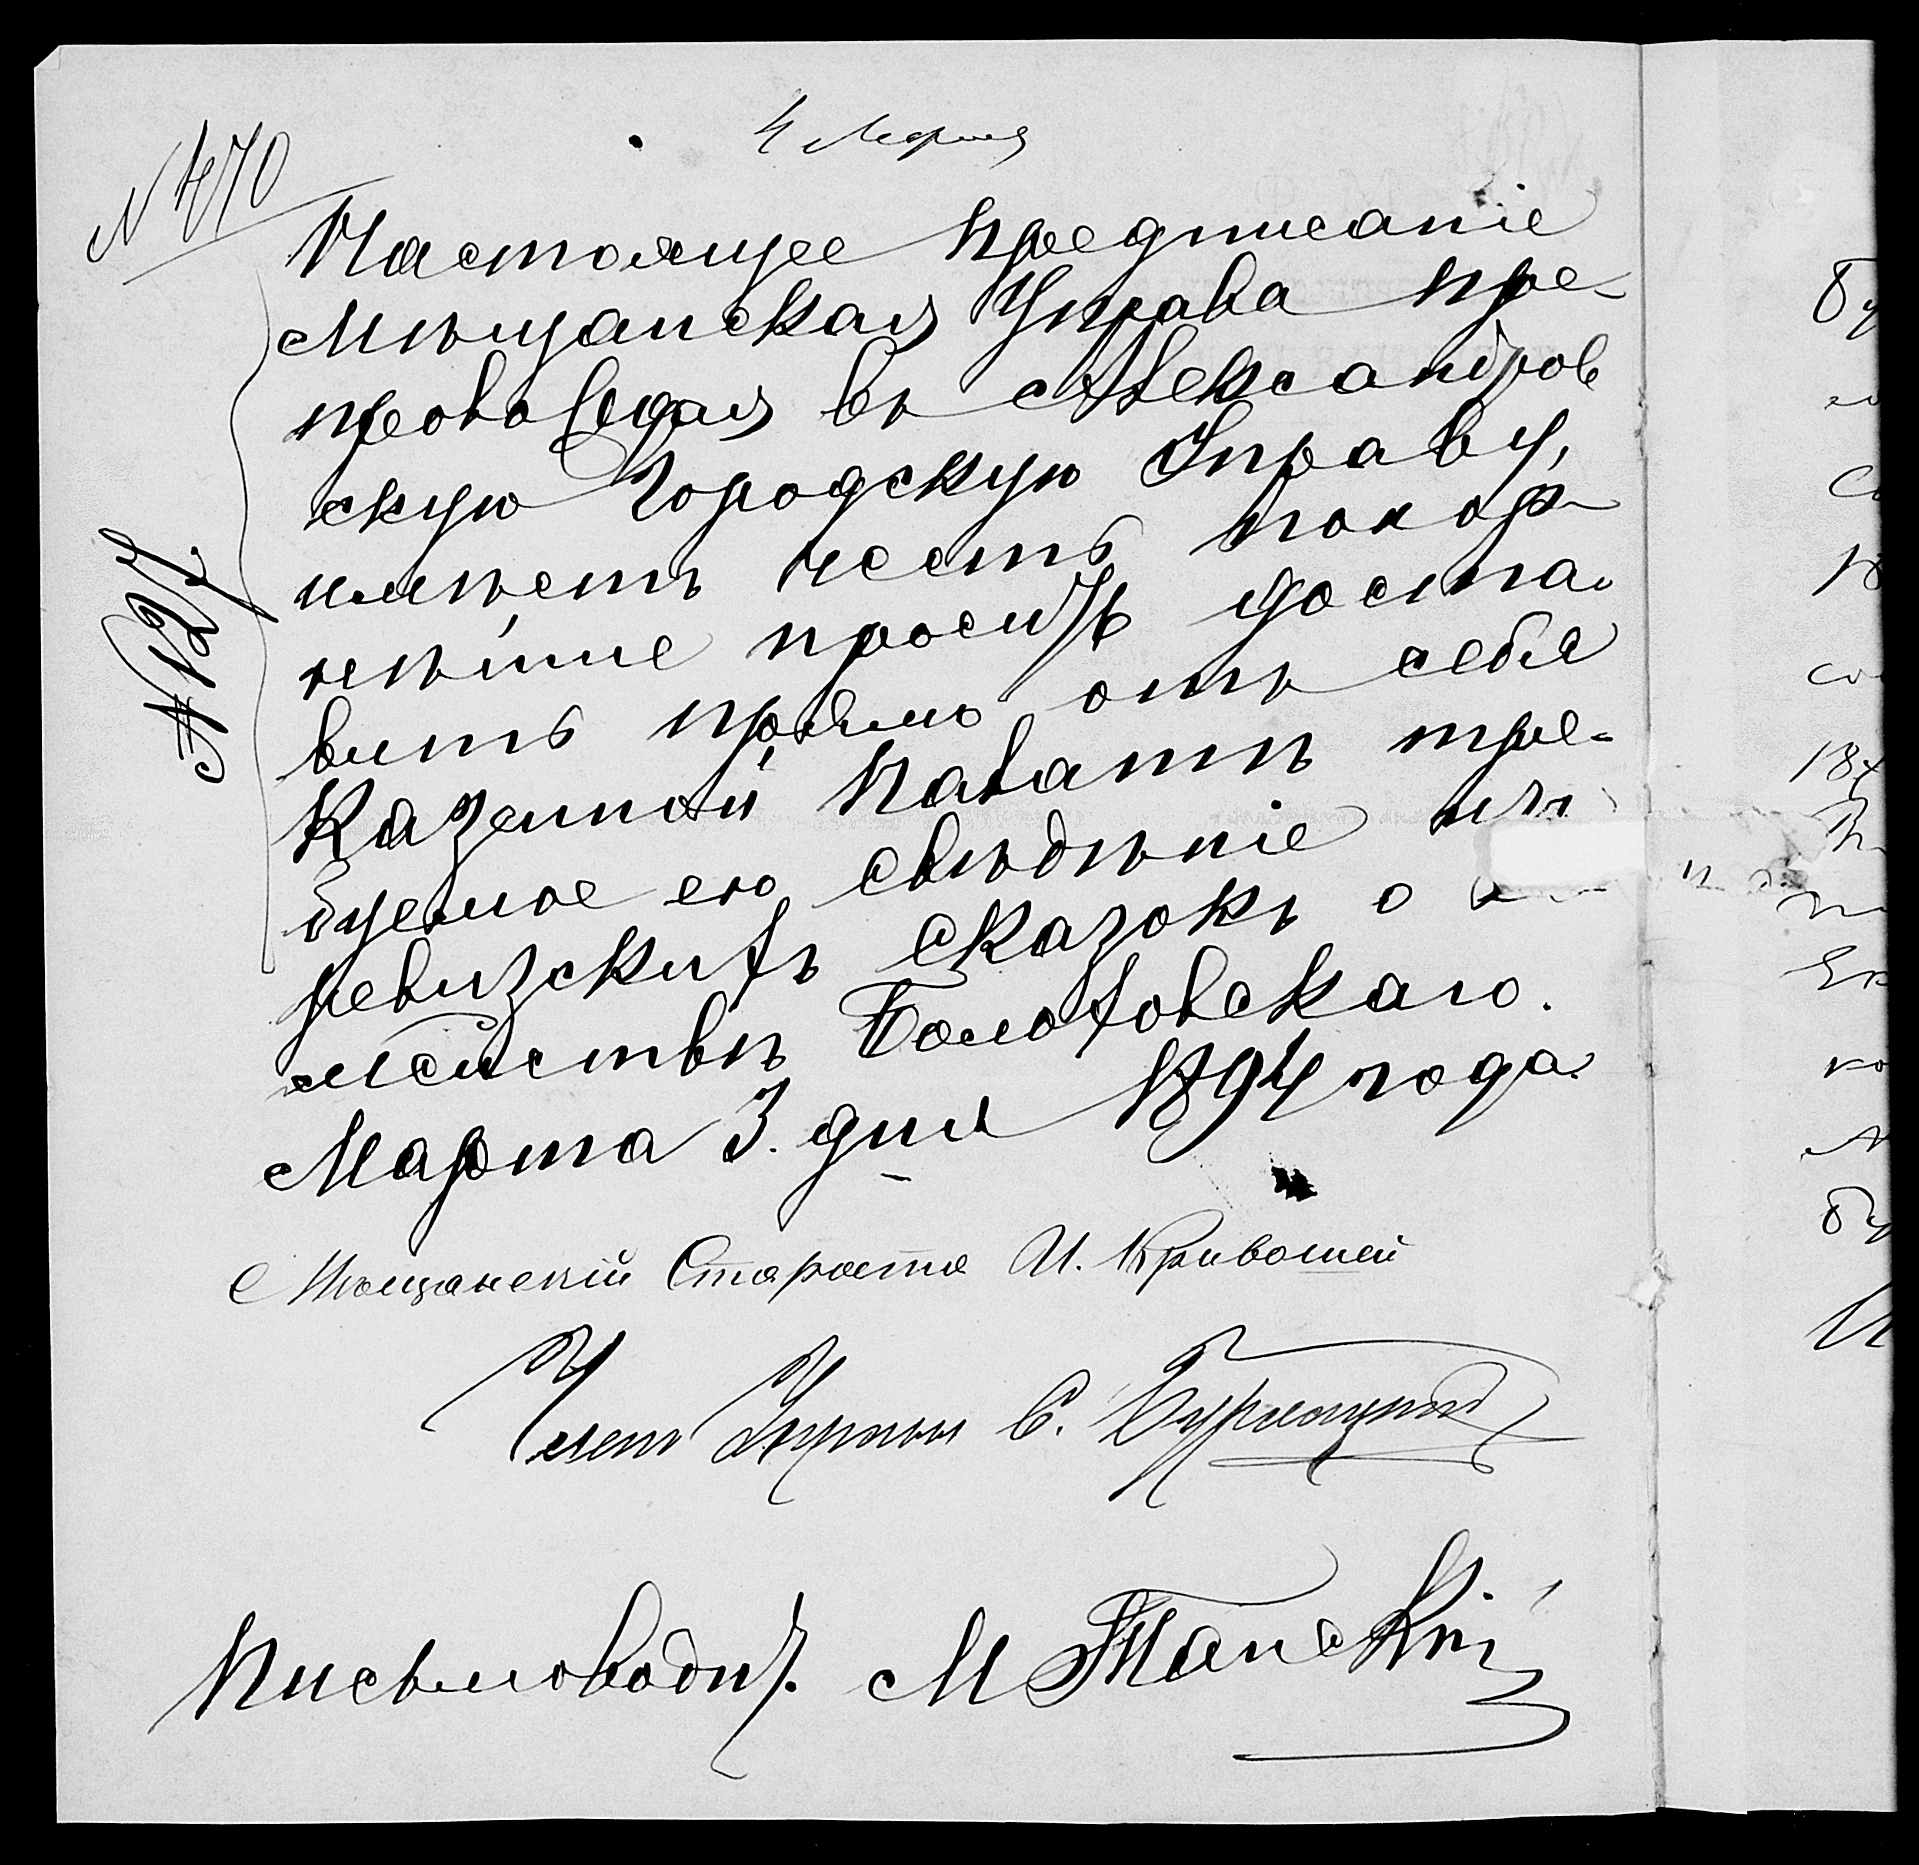 4 Марта
N 470
Настоящее предписаніе
Мѣщанская Управа пре-
провождая въ Александров
скую Городскую Управу,
имѣетъ честь покор-
нѣйше просить доста-
вить прямо отъ себя
Казенной Палатѣ тре-
буемое ею свѣдѣніе изъ
ревизскихъ сказокъ о
Болотовскаго.
Марта 3. дня 1894 года
N 127.
Мѣщанскій Староста И. Кривошей
Членъ Управы С.
Письмоводит. М Танскій